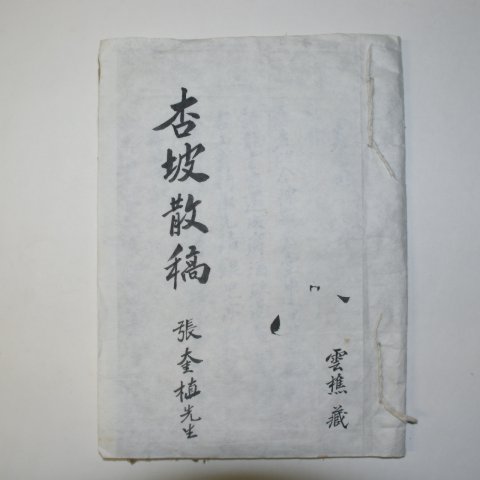 杏坡散稿
張奎植先生
雲樵藏